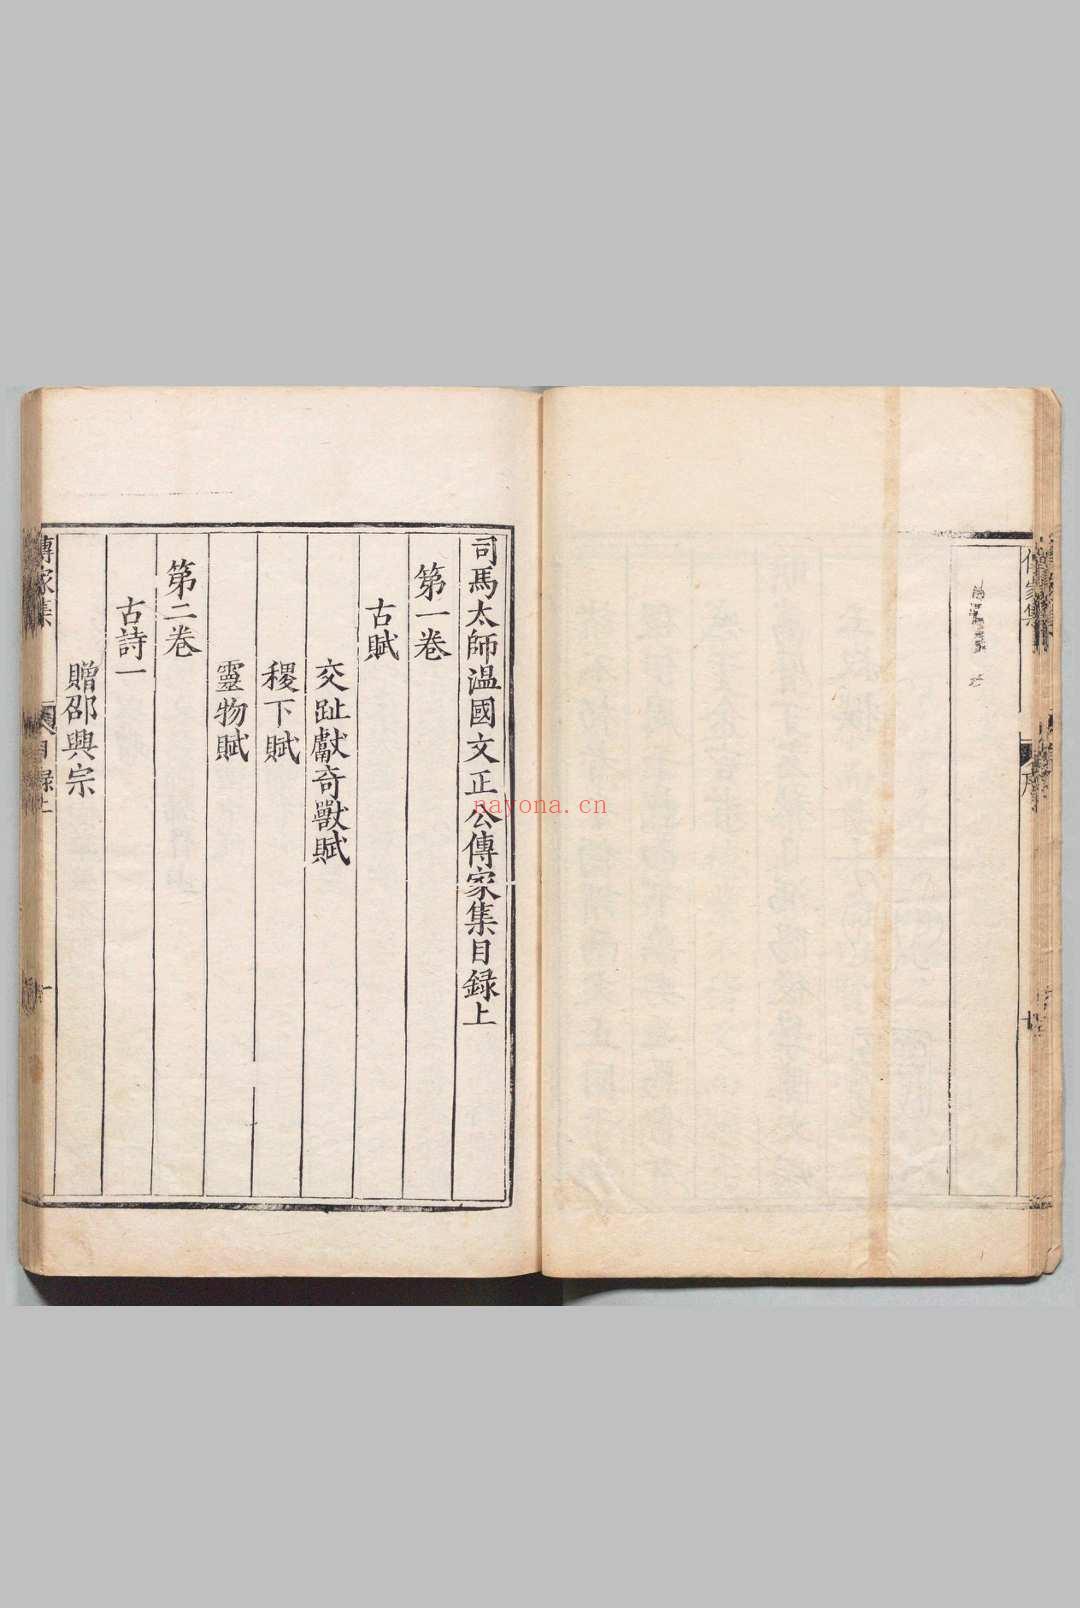 傳家集
序
司馬太師温國文正公傳家集目録上
第一卷
古賦
交趾獻奇獸賦
稷下賦
靈物賦
第二卷
古詩一
贈邵興宗
傳家集
目録上
一
nayona.cn